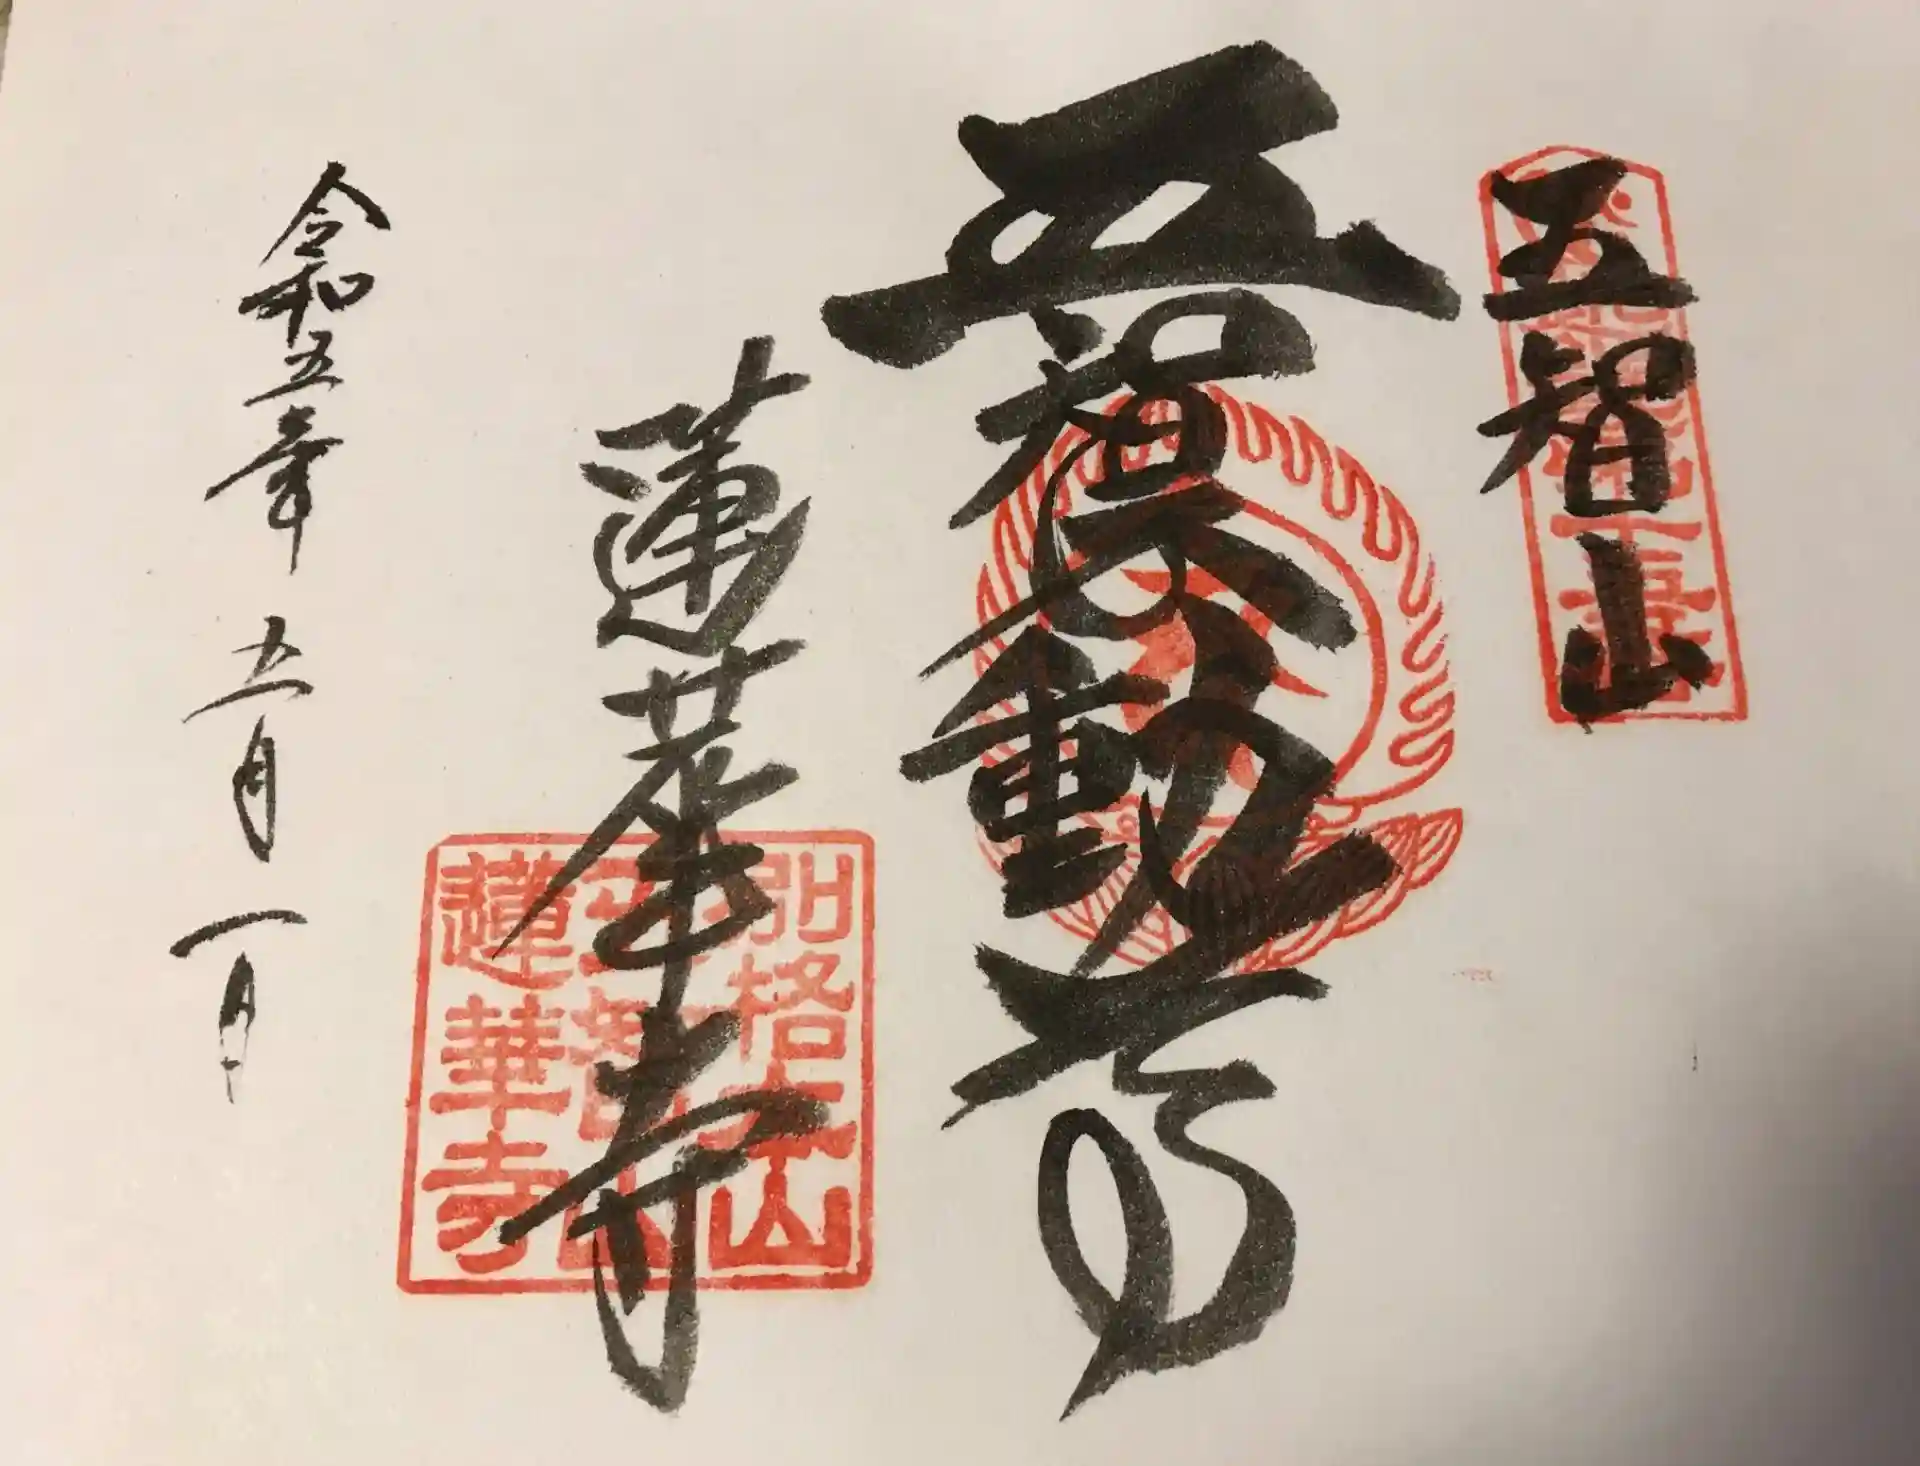 五智山
五智不動尊
蓮華寺
別格本山
五智山
蓮華寺
令和五年 五月 一日